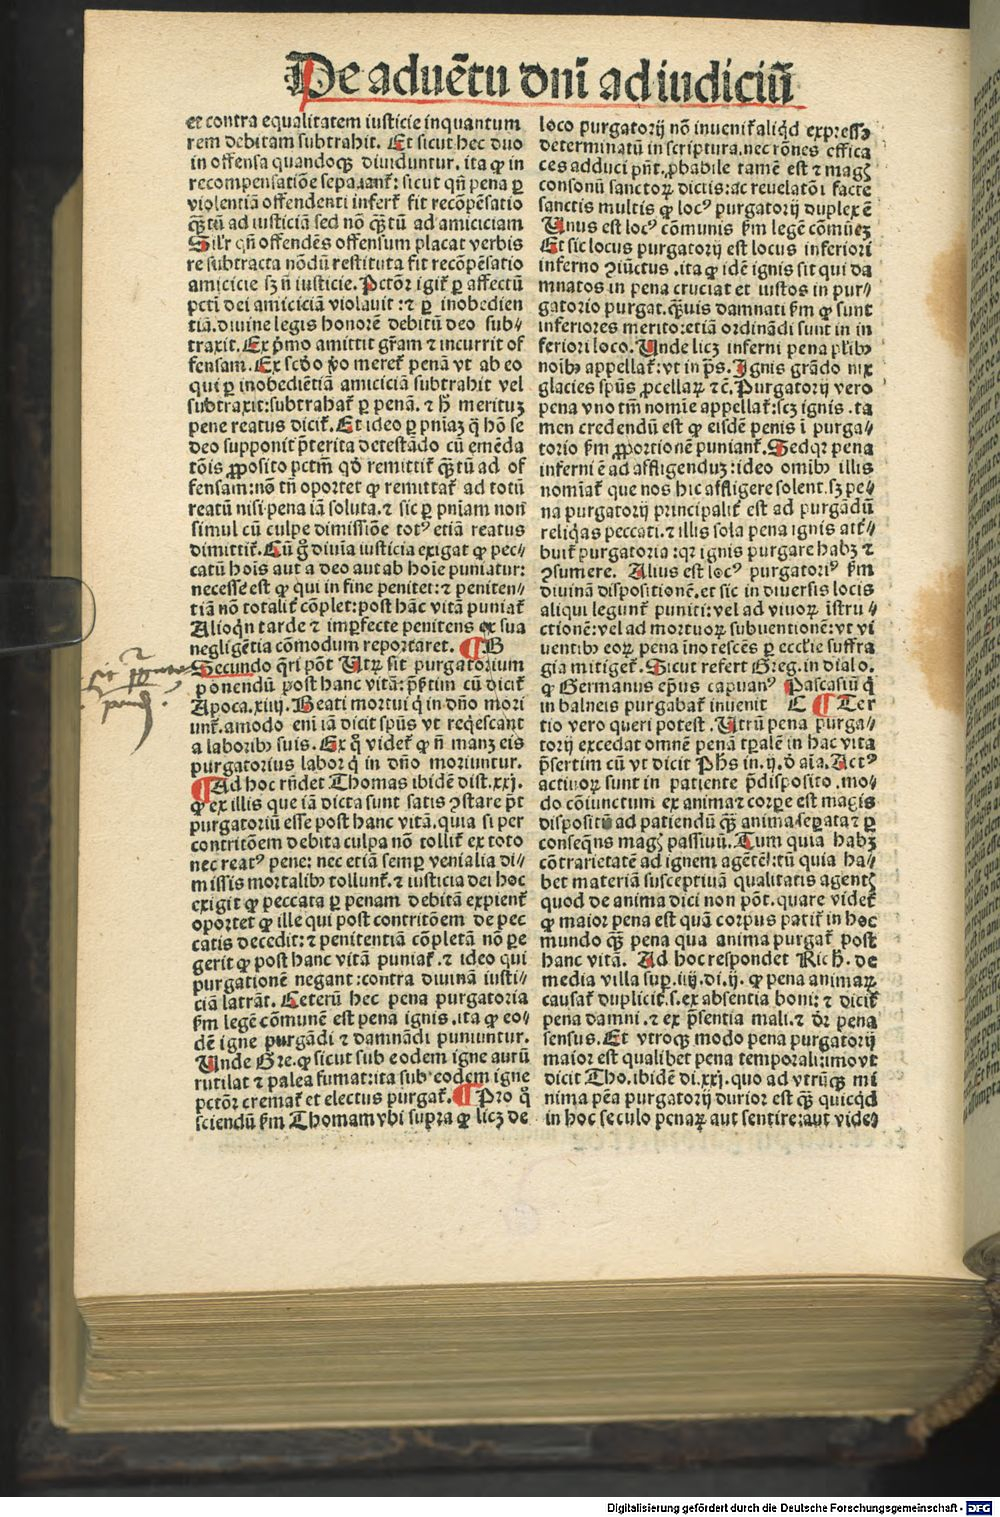 De aduētu dn̄i ad iudiciū
et contra equalitatem iusticie inquantum
rem debitam subtrahit. Et sicut hec duo
in offensa quandoqꝫ diuiduntur. ita ꝙ in
recompensatiōe separant᷑: sicut qn̄ pena ꝑ
violentiā offendenti infert᷑ fit recōpēsatio
qꝫtū ad iusticiā sed nō qꝫtū ad amiciciam
Sil'r qn̄ offendēs offensum placat verbis
re subtracta nōdū restituta fit recōpēsatio
amicicie sꝫ n̄ iusticie. Pctōr igit᷑ ꝑ affectū
pctī dei amiciciā violauit : ⁊ ꝑ inobedien
tiā. diuine legis honorē debitū deo sub⸗
traxit. Ex p̄mo amittit gr̄am ⁊ incurrit of
fensam. Ex scd̄o ꝟo meret᷑ penā vt ab eo
qui ꝑ inobediētiā amiciciā subtrahit vel
subtraxit: subtrahat᷑ ꝑ penā. ⁊ h̄ merituꝫ
pene reatus dicit᷑. Et ideo ꝑ pn̄iaꝫ q̄ hō se
deo supponit p̄terita detestādo cū emēda
tōis ꝓposito pctm̄ qd̄ remittit᷑ qꝫtū ad of
fensam: nō tn̄ oportet ꝙ remittat᷑ ad totū
reatū nisi pena iā soluta. ⁊ sic ꝑ pn̄iam non
simul cū culpe dimissiōe totꝰ etiā reatus
dimittit᷑. Cū g̊ diuīa iusticia exigat ꝙ pec⸗
catū hoīs aut a deo aut ab hoīe puniatur:
necesse est ꝙ qui in fine penitet: ⁊ peniten⸗
tiā nō totalit᷑ cōplet: post hāc vitā puniat᷑
Alioqͥn tarde ⁊ imꝑfecte penitens ex sua
negligētia cōmodum reportaret. ¶ B
Secundo q̄ri pōt Utꝝ sit purgatorium
ponendū post hanc vitā: p̄s̄tim cū dicit᷑
Apoca. xiiij. Beati mortui qͥ in dn̄o mori
unt᷑. amodo enī iā dicit spūs vt reqͥescant
a laboribꝰ suis. Ex qͦ videt᷑ ꝙ n̄ manꝫ eis
purgatorius labor qͥ in dn̄o moriuntur.
¶ Ad hoc rn̄det Thomas ibidē dist. xxj.
ꝙ ex illis que iā dicta sunt satis ꝯstare p̄t
purgatoriū esse post hanc vitā. quia si per
contritōem debita culpa nō tollit᷑ ex toto
nec reatꝰ pene: nec etiā semꝑ venialia di⸗
missis mortalibꝰ tollunt᷑. ⁊ iusticia dei hoc
exigit ꝙ peccata ꝑ penam debitā expient᷑
oportet ꝙ ille qui post contritōem de pec
catis decedit: ⁊ penitentiā cōpletā nō ꝑe
gerit ꝙ post hanc vitā puniat᷑. ⁊ ideo qui
purgationē negant : contra diuinā iusti⸗
ciā latrāt. Ceterū hec pena purgatoria
ẜm legē cōmunē est pena ignis. ita ꝙ eo⸗
dē igne purgādi ⁊ damnādi puniuntur.
Unde Gre. ꝙ sicut sub eodem igne aurū
rutilat ⁊ palea fumat: ita sub eodem igne
pctōr cremat᷑ et electus purgat᷑. ¶ Pro qͦ
sciendū ẜm Thomam vbi supra ꝙ licꝫ de
loco purgatorij nō inuenit᷑ aliqͥd expresse
determinatū in scriptura. nec rōnes effica
ces adduci pn̄t. ꝓbabile tamē est ⁊ magꝭ
consonū sanctoꝝ dictis: ac reuelatōi facte
sanctis multis ꝙ locꝰ purgatorij duplex ē
Unus est locꝰ cōmunis ẜm legē cōmūeꝫ
Et sic locus purgatorij est locus inferiori
inferno ꝯiūctus. ita ꝙ idē ignis sit qui da
mnatos in pena cruciat et iustos in pur⸗
gatorio purgat. qꝫuis damnati ẜm ꝙ sunt
inferiores merito: etiā ordinādi sunt in in
feriori loco. Unde licꝫ inferni pena pl'ibꝰ
noībꝰ appellat᷑: vt in p̄s. Ignis grādo nix
glacies spūs ꝓcellaꝝ ⁊c̄. Purgatorij vero
pena vno tm̄ nomīe appellat᷑: scꝫ ignis. ta
men credendū est ꝙ eisdē penis ī purga⸗
torio ẜm ꝓportionē puniant᷑. Sed qꝛ pena
inferni ē ad affligenduꝫ: ideo omībꝰ illis
nomīat᷑ que nos hic affligere solent. sꝫ pe⸗
na purgatorij principalit᷑ est ad purgādū
reliqͥas peccati. ⁊ illis sola pena ignis att᷑⸗
buit᷑ purgatoria: qꝛ ignis purgare habꝫ ⁊
ꝯsumere. Alius est locꝰ purgatoriꝰ ẜm
diuinā dispositionē. et sic in diuersis locis
aliqui legunt᷑ puniti: vel ad viuoꝝ īstru⸗
ctionē: vel ad mortuoꝝ subuentionē: vt vi
uentibꝰ eoꝝ pena inotescēs ꝑ eccl'ie suffra
gia mitiget᷑. Sicut refert Greg. in dialo.
ꝙ Germanus ep̄us capuanꝰ Pascasiū qͥ
in balneis purgabat᷑ inuenit C ¶ Ter
tio vero queri potest. Utrū pena purga⸗
torij excedat omnē penā tꝑalē in hac vita
p̄sertim cū vt dicit Ph̄s in. ij. d̄ aīa. Actꝰ
actiuoꝝ sunt in patiente p̄disposito. mo⸗
do cōiunctum ex anima ⁊ corꝑe est magis
dispositū ad patiendū qꝫ anima seꝑata ⁊ ꝑ
conseqn̄s magꝭ passiuū. Tum quia habꝫ
cōtrarietatē ad ignem agētē: tū quia ha⸗
bet materiā susceptiuā qualitatis agentꝭ
quod de anima dici non pōt. quare videt᷑
ꝙ maior pena est quā corpus patit᷑ in hoc
mundo qꝫ pena qua anima purgat᷑ post
hanc vitā. Ad hoc respondet Rich̄. de
media villa suꝑ. iiij. di. ij. ꝙ pena animaꝝ
causat᷑ duplicit᷑. s. ex absentia boni: ⁊ dicit᷑
pena damni. ⁊ ex p̄sentia mali. ⁊ dr̄ pena
sensus. Et vtroqꝫ modo pena purgatorij
maior est qualibet pena temporali: imo vt
dicit Tho. ibidē di. xxj. quo ad vtrūqꝫ mi
nima pēa purgatorij durior est qꝫ quicqͥd
in hoc seculo penaꝝ aut sentire: aut vide⸗
Digitalisierung gefördert durch die Deutsche Forschungsgemeinschaft - DFG